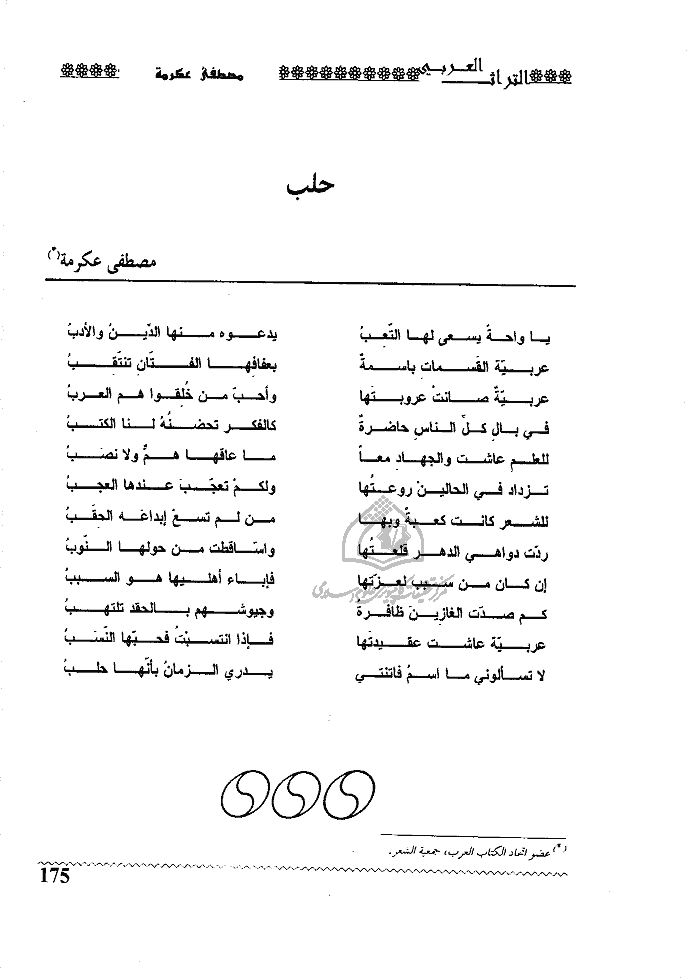 التراث العربي مصطفى عكرمة
حلب
مصطفى عكرمة(*)
يا واحةً يسعى لها التعِبُ يدعوه منها الدّينُ والأدبُ
عربيّة القسمات باسمةٌ بعفافها الفتّان تنتقبُ
عربيّةٌ صانتْ عروبتَها وأحبّ من خُلقوا هم العربُ
في بالِ كلّ الناسِ حاضرةٌ كالفكر تحضنُهُ لنا الكتبُ
للعلم عاشت والجهاد معاً ما عاقها همٌّ ولا نصبُ
تزداد في الحالينْ روعتُها ولكمْ تعجّب عندها العجبُ
للشعر كانت كعبةً وبها من لم تسعْ إبداعَه الحقبُ
ردّت دواهي الدهر قلعتُها واسّاقطت من حولها النّوبُ
إن كان من سبب لعزّتها فإباء أهليها هو السببُ
كم صدّت الغازين ظافرةً وجيوشهم بالحقد تلتهبُ
عربيّة عاشت عقيدتَها فإذا انتسبتُ فحبّها النّسَبُ
لا تسألوني ما اسمُ فاتنتي يدري الزمانُ بأنّها حلبُ
(*) عضو اتحاد الكتاب العرب، جمعية الشعر.
175